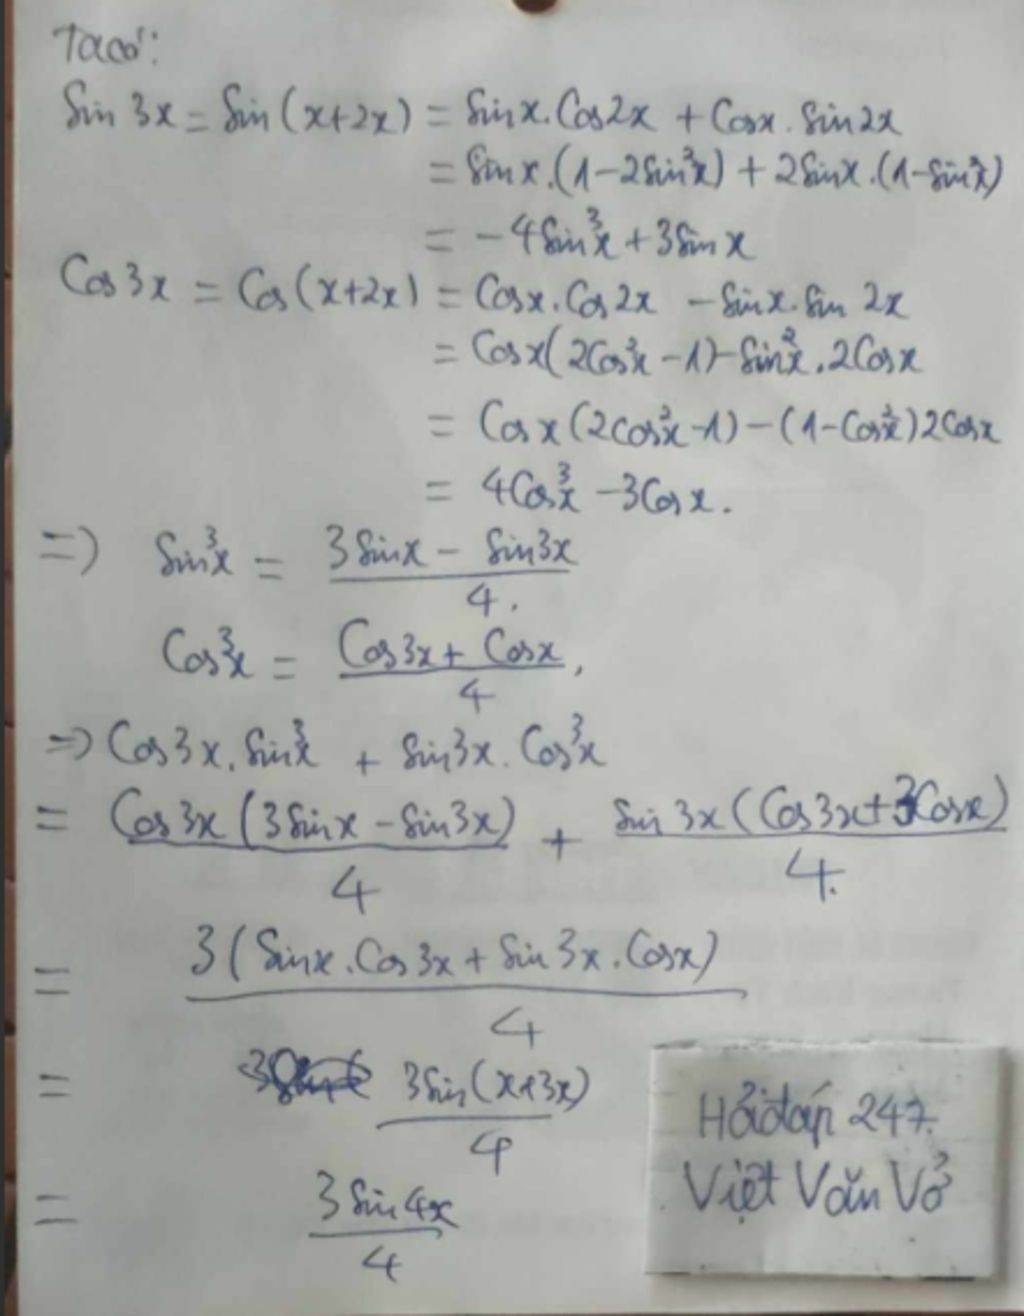 Ta có:
Sin 3x = Sin (x+2x) = Sinx.Cos2x + Cosx.Sin2x
= Sinx.(1-2Sin²x) + 2Sinx.(1-Sin²x)
= -4Sin³x + 3Sin x
Cos 3x = Cos (x+2x) = Cosx.Cos2x - Sinx.Sin 2x
= Cosx(2Cos²x - 1) - Sin²x.2Cosx
= Cosx(2Cos²x-1) - (1-Cos²x)2Cosx
= 4Cos³x - 3Cosx.
=> Sin³x = (3Sinx - Sin3x)/4.
Cos³x = (Cos3x + Cosx)/4,
=> Cos3x.Sin³x + Sin3x.Cos³x
= Cos3x(3Sinx - Sin3x)/4 + Sin3x(Cos3x+3Cosx)/4.
= 3(Sinx.Cos3x + Sin3x.Cosx)/4
= 3Sin(x+3x)/4
= 3Sin4x/4
Hỏi đáp 247.
Việt Văn Vở